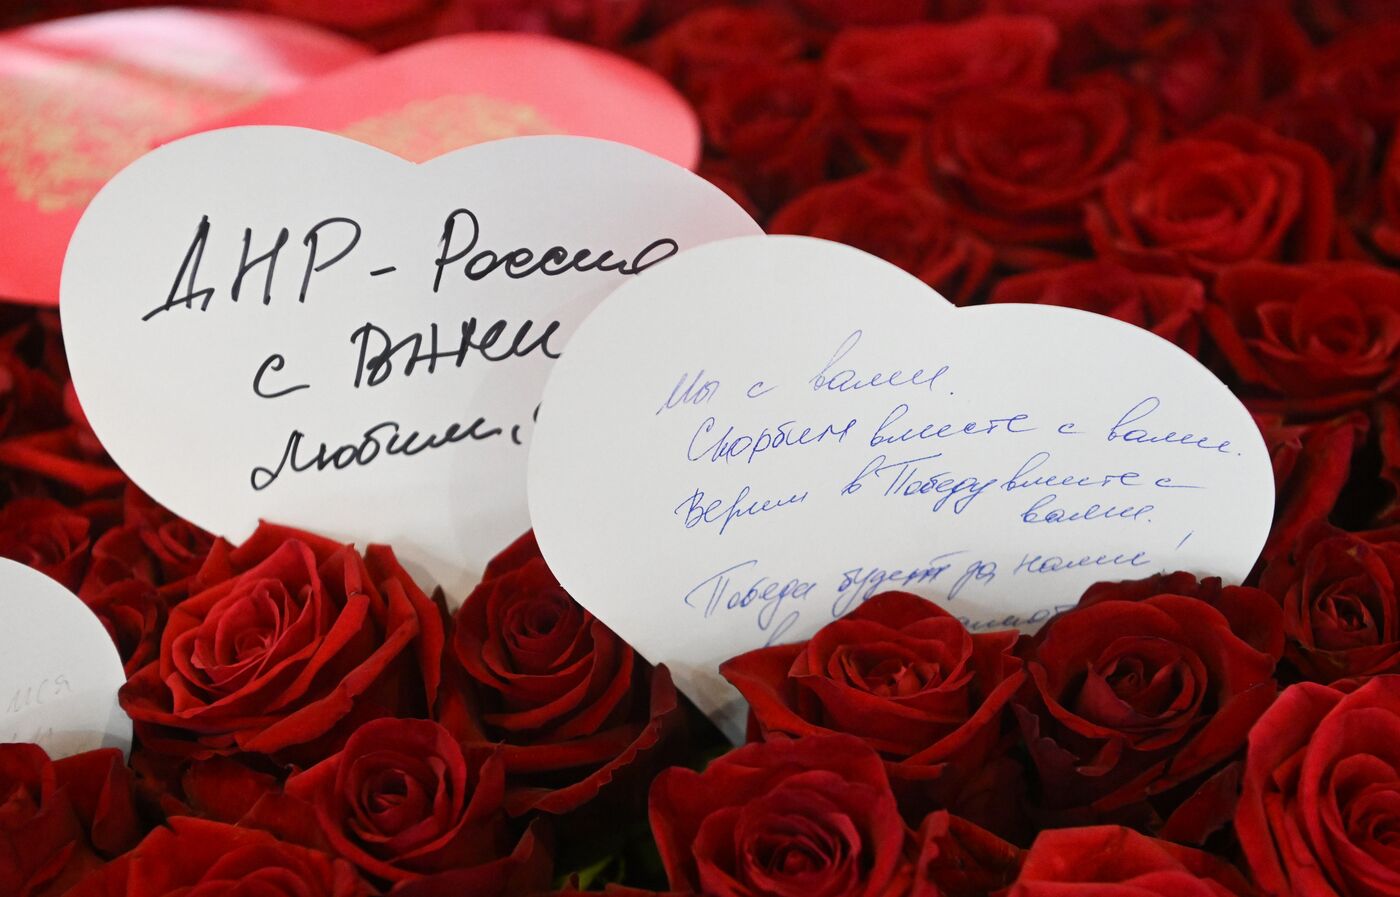 ДНР - Россия
с вами
Любим,
Мы с вами.
Скорбим вместе с вами.
Верим в Победу вместе с
вами.
Победа будет за нами!
мся